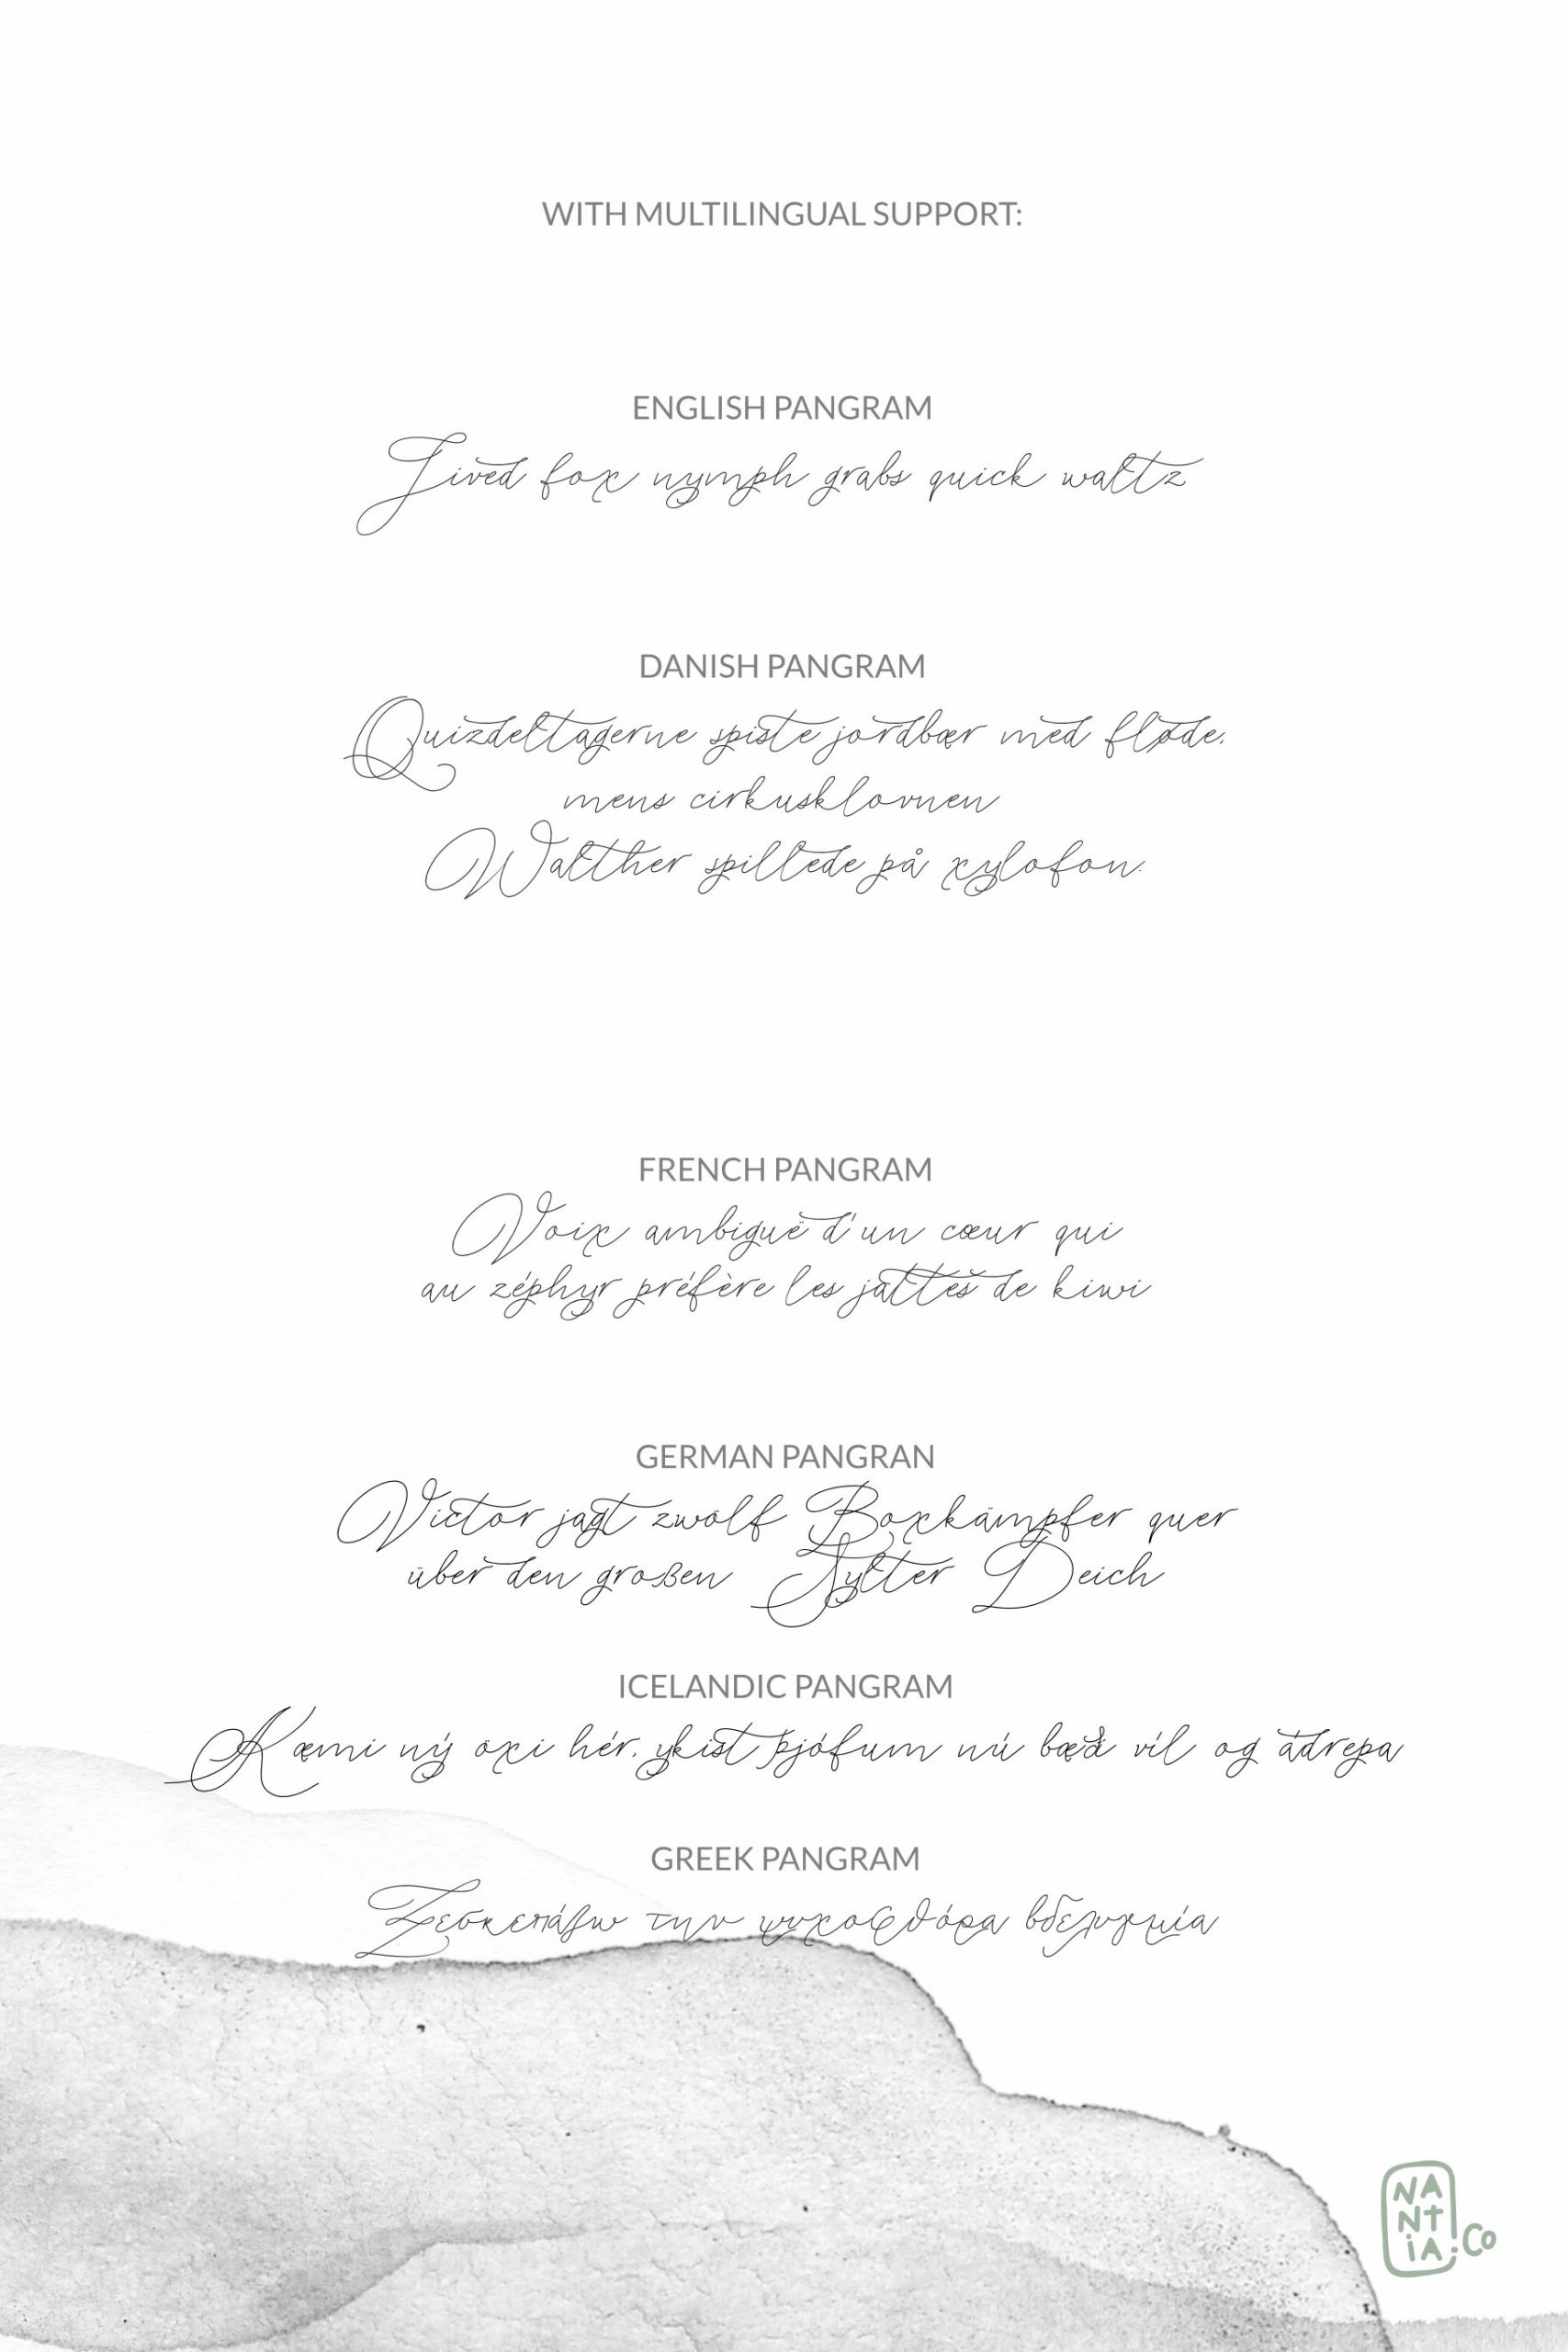 WITH MULTILINGUAL SUPPORT:
ENGLISH PANGRAM
Jived fox nymph grabs quick waltz
DANISH PANGRAM
Quizdeltagerne spiste jordbær med fløde,
mens cirkusklovnen
Walther spillede på xylofon.
FRENCH PANGRAM
Voix ambiguë d'un cœur qui
au zéphyr préfère les jattes de kiwi
GERMAN PANGRAN
Victor jagt zwölf Boxkämpfer quer
über den großen Sylter Deich
ICELANDIC PANGRAM
Kæmi ný öxi hér, ykist þjófum nú bæði víl og ádrepa
GREEK PANGRAM
Ξεσκεπάζω την ψυχοφθόρα βδελυγμία
NA
NT
iA.Co